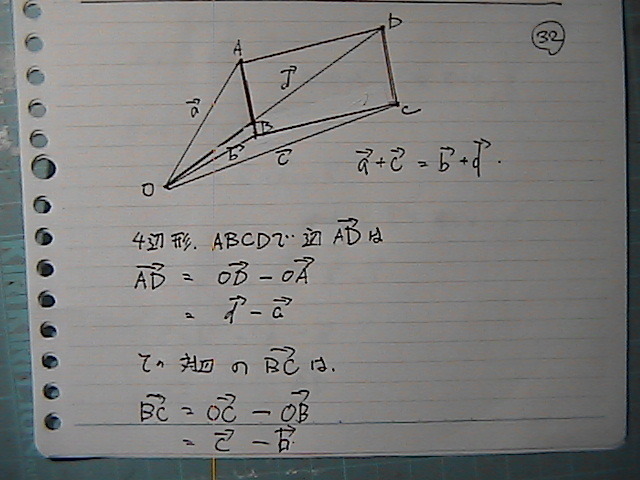 32
D
A
a⃗
d⃗
B
b⃗
c⃗
C
O
a⃗ + c⃗ = b⃗ + d⃗.
4辺形. ABCDで 辺 AD⃗ は
AD⃗ = OD⃗ - OA⃗
= d⃗ - a⃗
対辺 の BC⃗ は.
BC⃗ = OC⃗ - OB⃗
= c⃗ - b⃗